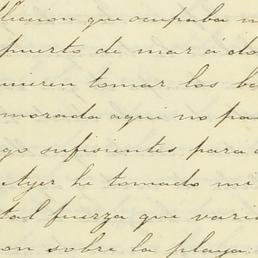 licion que ocupaba m
puerto de mar á do
uieren tomar los ba
morada aqui no pa
go sufisientes para
Ayer he tomado mi
tal fuerza que vari
on sobre la playa: